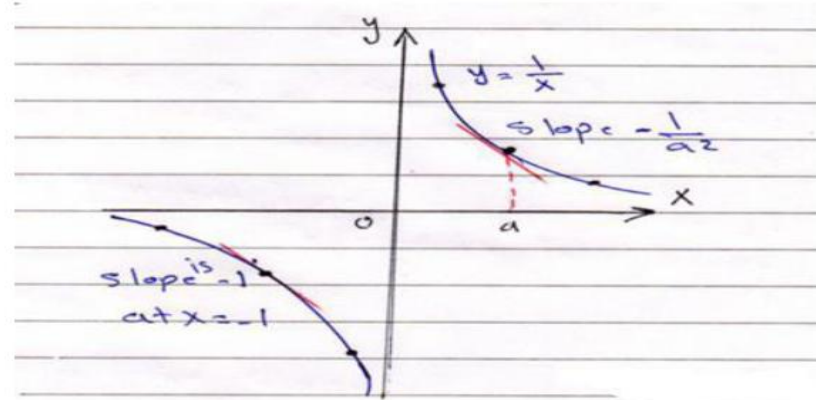 y
y = 1/x
slope - 1/a²
x
o
a
slope is -1
at x = -1